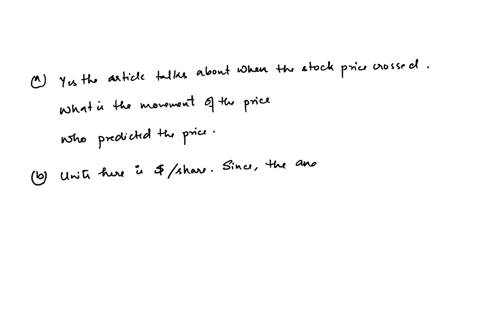 (a) Yes the article talks about when the stock price crossed.
What is the movement of the price
Who predicted the price.
(b) Units here is $/share. Since, the ano